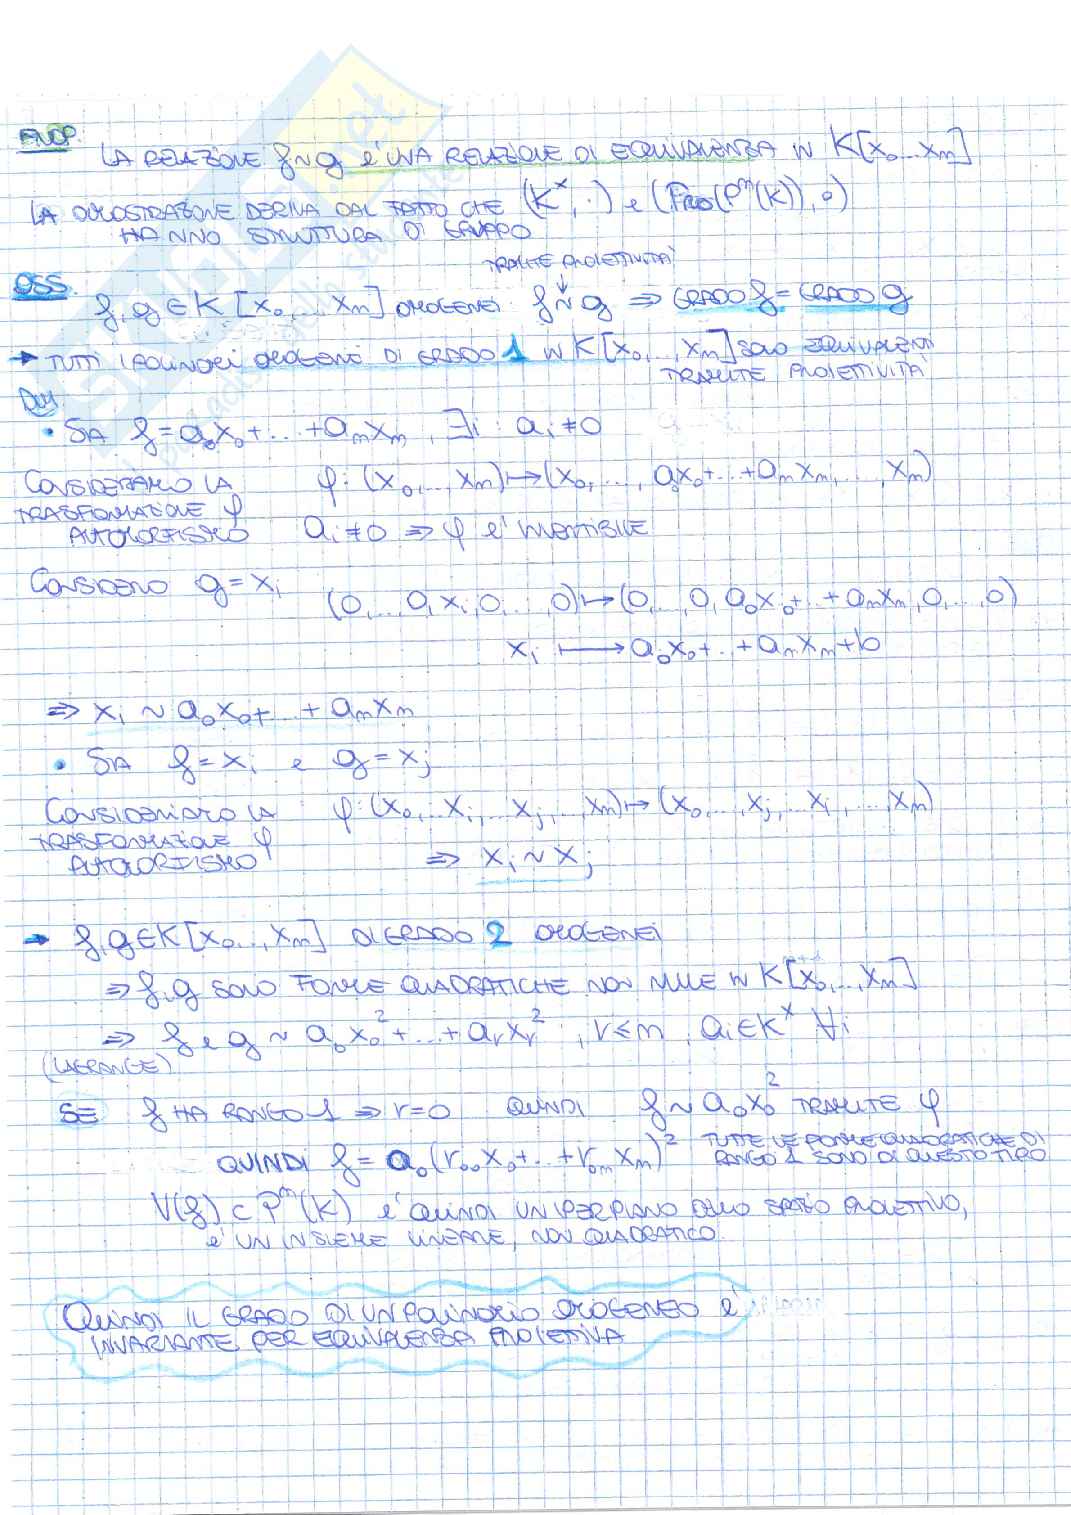 PROP.
LA RELAZIONE f~g è UNA RELAZIONE DI EQUIVALENZA IN K[x₀...xₙ]
LA DIMOSTRAZIONE DERIVA DAL FATTO CHE (Kˣ, ·) e (Pro(Pⁿ(K)), ∘)
HANNO STRUTTURA DI GRUPPO
TRAMITE PROIETTIVITÀ
↓
OSS.
f, g ∈ K [x₀,... xₙ] OMOGENEI f~g ⇒ GRADO f = GRADO g
→ TUTTI I POLINOMI OMOGENEI DI GRADO 1 IN K[x₀,..., xₙ] SONO EQUIVALENTI
TRAMITE PROIETTIVITÀ
DIM
• SIA f = a₀x₀+...+aₙxₙ , ∃i : aᵢ≠0
CONSIDERIAMO LA φ: (x₀,..., xₙ) ↦ (x₀,..., a₀x₀+...+aₙxₙ,..., xₙ)
TRASFORMAZIONE φ
AUTOMORFISMO aᵢ≠0 ⇒ φ è INVERTIBILE
CONSIDERO g = xᵢ (0,...0, xᵢ, 0,..., 0) ↦ (0,..., 0, a₀x₀+...+aₙxₙ, 0,..., 0)
xᵢ ⟼ a₀x₀+...+aₙxₙ+b
⇒ xᵢ ~ a₀x₀+...+aₙxₙ
• SIA f = xᵢ e g = xⱼ
CONSIDERIAMO LA φ: (x₀,...xᵢ,...xⱼ,...,xₙ) ↦ (x₀,..., xⱼ,...xᵢ,...,xₙ)
TRASFORMAZIONE φ
AUTOMORFISMO ⇒ xᵢ ~ xⱼ
→ f, g ∈ K[x₀...,xₙ] DI GRADO 2 OMOGENEI
⇒ f, g SONO FORME QUADRATICHE NON NULLE IN K[x₀,...,xₙ]
⇒ f e g ~ a₀x₀²+...+aᵣxᵣ² , r≤n, aᵢ∈Kˣ ∀i
(LAGRANGE)
SE f HA RANGO 1 ⇒ r=0 QUINDI f ~ a₀x₀² TRAMITE φ
QUINDI f = a₀(r₀₀x₀+...+r₀ₙxₙ)² TUTTE LE FORME QUADRATICHE DI
RANGO 1 SONO DI QUESTO TIPO
V(f) ⊂ Pⁿ(K) è QUINDI UN IPERPIANO DELLO SPAZIO PROIETTIVO,
è UN INSIEME LINEARE, NON QUADRATICO.
QUINDI IL GRADO DI UN POLINOMIO OMOGENEO è
INVARIANTE PER EQUIVALENZA PROIETTIVA